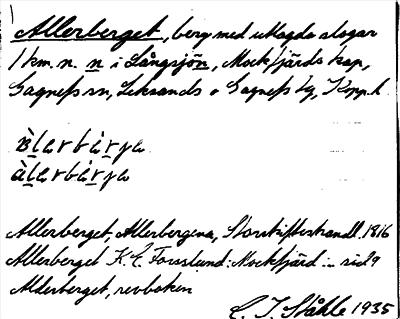 Allerberget, berg med utlagda slogar
1 km. n. n i Långsjön, Mockfjärds kap,
Gagnefs sn, Leksands o Gagnefs tg, Kopp. l.
àlarbàrja
àlarbàrja
Allerberget, Allerbergena, Storskifteshandl. 1816
Allerberget K. E. Forsslund: Mockfjärd ... sid 9
Alderberget, revboken
C. I. Ståhle 1935